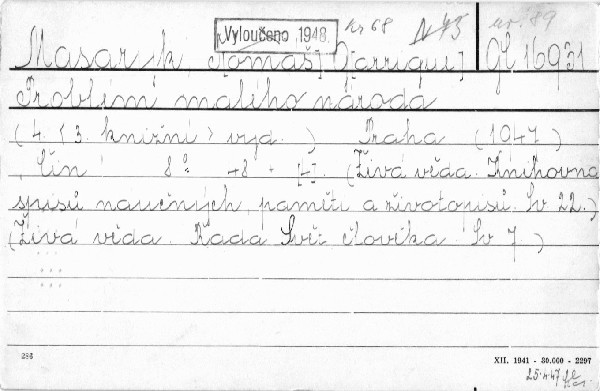 Vyloučeno 1948. Kr 68 N 73 rev. '89
Masaryk, Tomáš] G[arrigue] Gh 16931
Problém malého národa
(4. <3. knižní> vyd.) Praha (1947)
"Čin" 8° 48 + [-]. (Živá věda. Knihovna
spisů naučných, pamětí a životopisů. Sv 22.)
(Živá věda. Řada Svět člověka. Sv 7.)
286
XII. 1941 - 30.000 - 2297